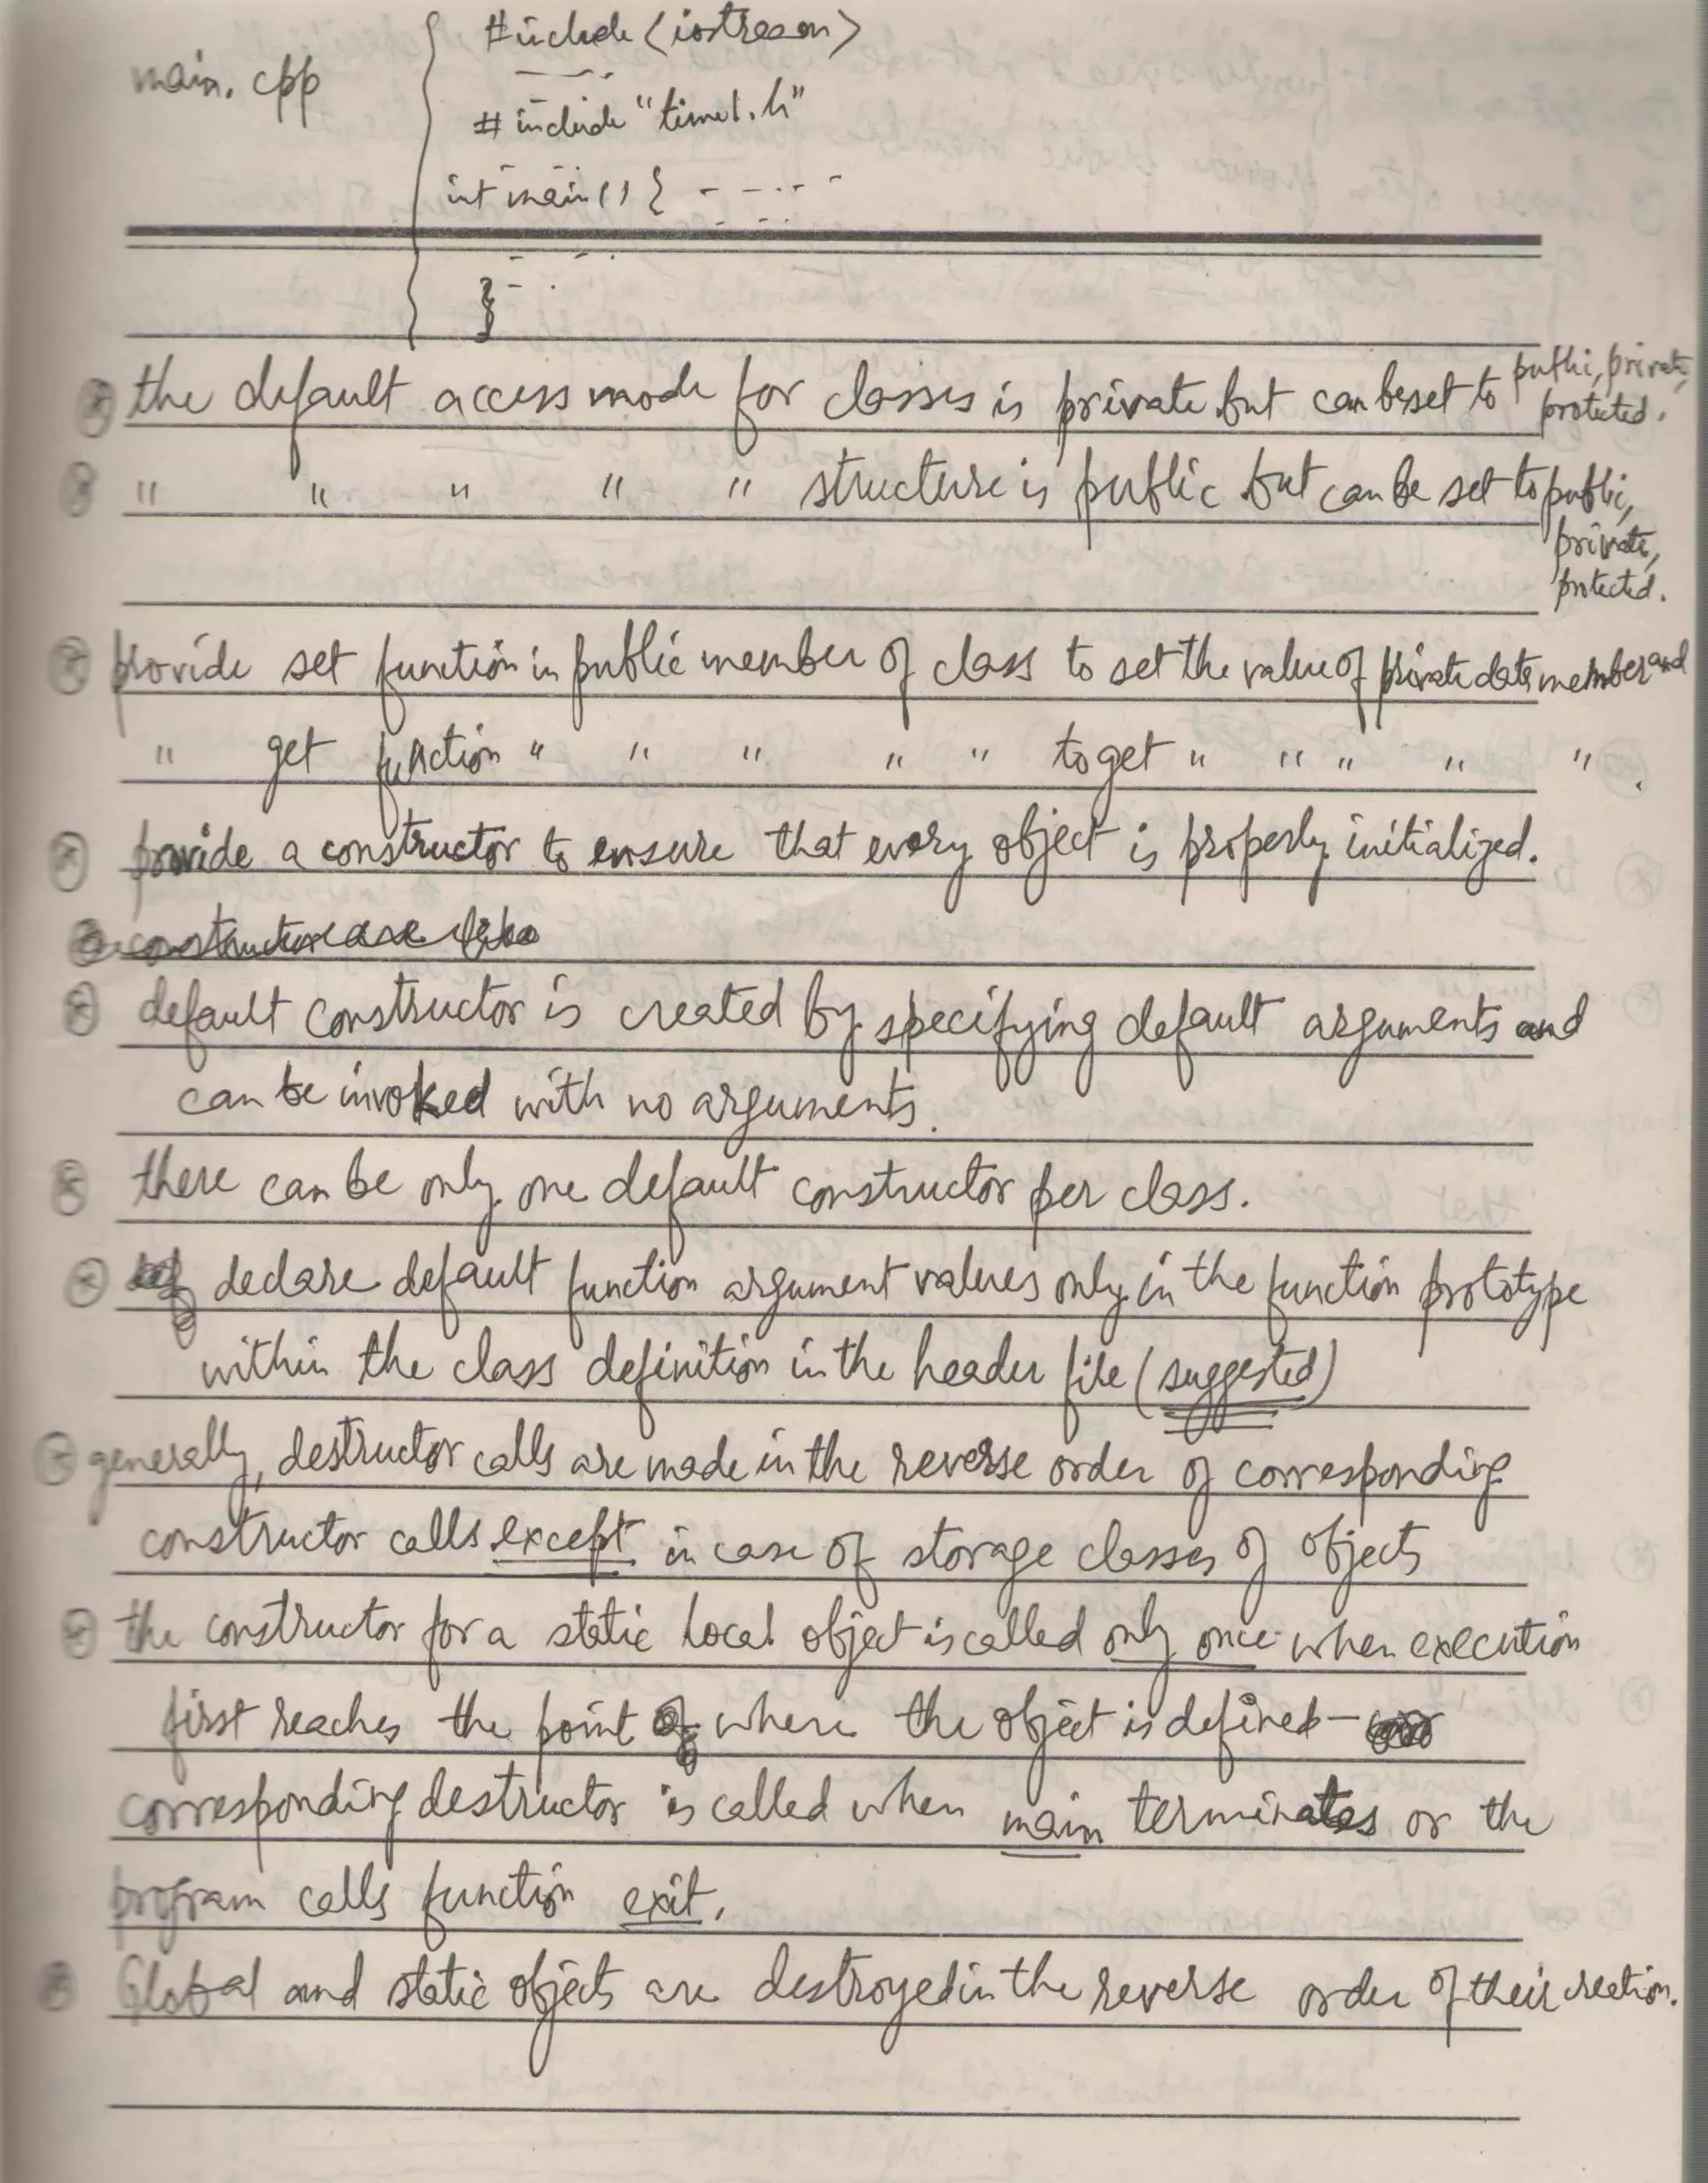 main.cpp
#include <iostream>
#include "time1.h"
int main() {
}
⊛ the default access mode for classes is private but can be set to public, private, protected.
⊛ " " " " " structure is public but can be set to public, private, protected.
⊛ provide set function in public member of class to set the value of private data member and
" get function " " " " " to get " " " " " .
⊛ provide a constructor to ensure that every object is properly initialized.
⊛ default constructor is created by specifying default arguments and
can be invoked with no arguments.
⊛ there can be only one default constructor per class.
⊛ declare default function argument values only in the function prototype
within the class definition in the header file (suggested)
⊛ generally, destructor calls are made in the reverse order of corresponding
constructor calls except in case of storage classes of objects
⊛ the constructor for a static local object is called only once when execution
first reaches the point where the object is defined –
corresponding destructor is called when main terminates or the
program calls function exit.
⊛ Global and static objects are destroyed in the reverse order of their creation.